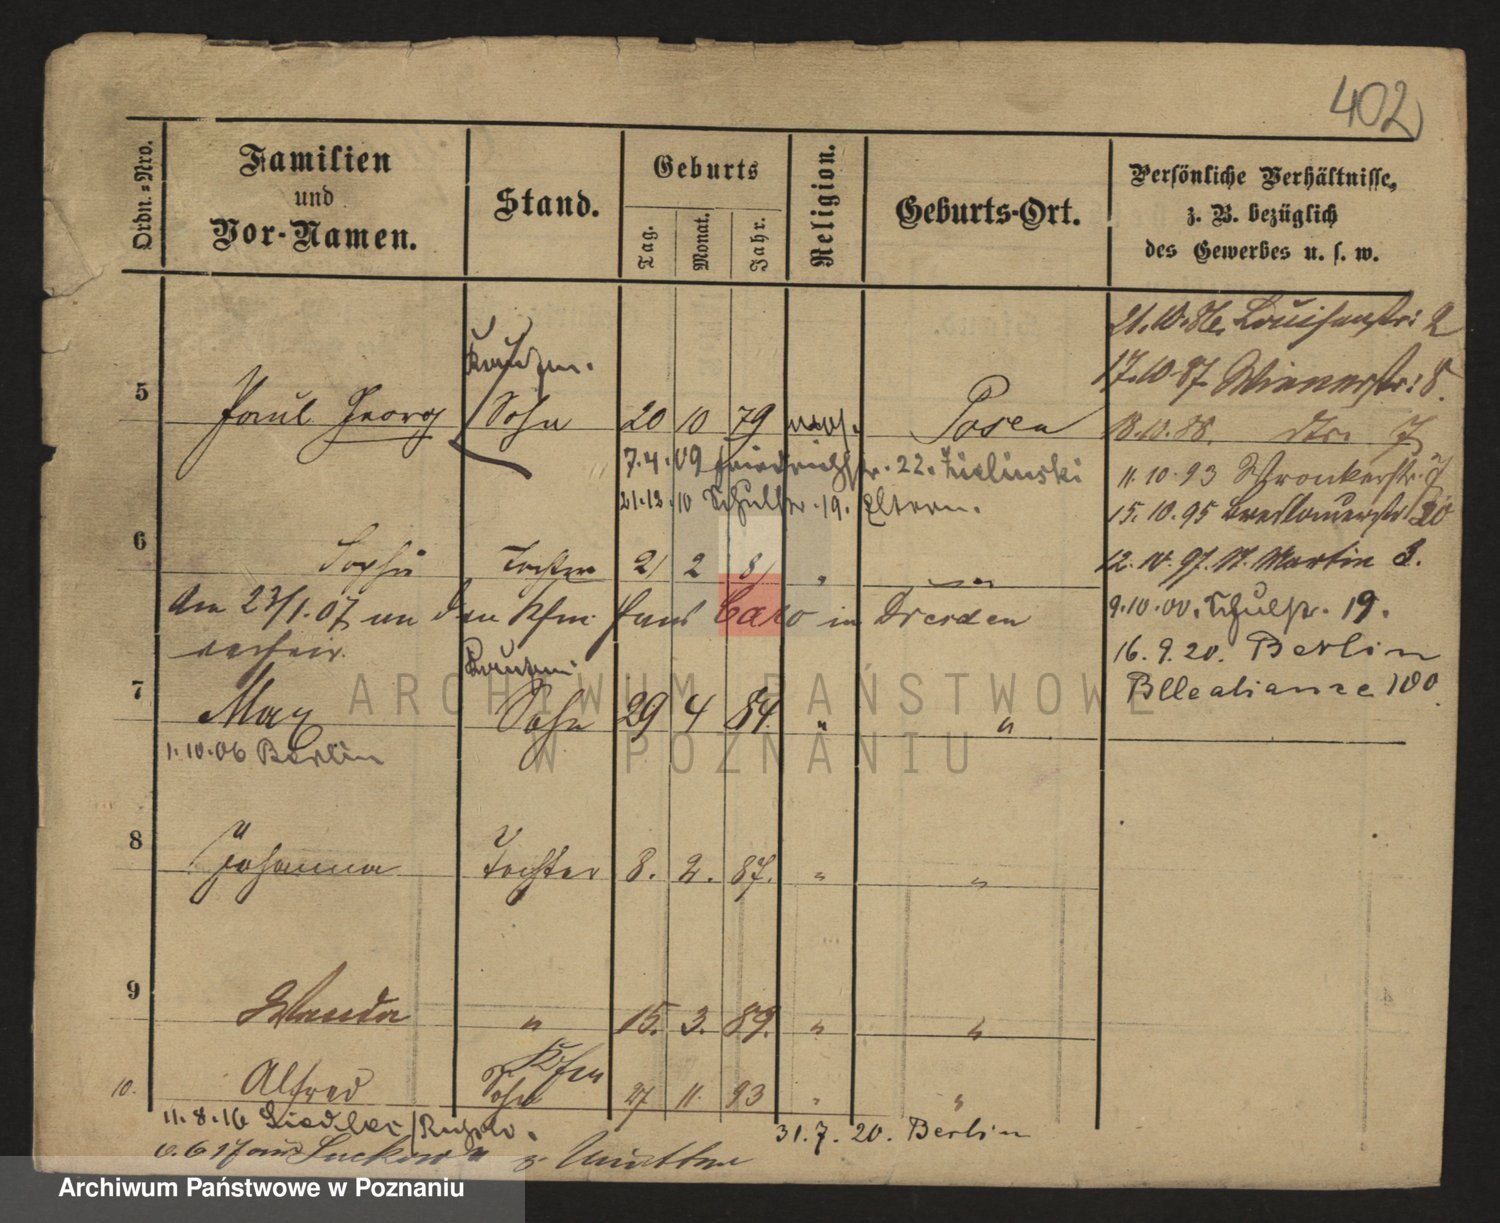 402
Ordn.-Nro.
Familien
und
Vor-Namen.
Stand.
Geburts
Tag.
Monat.
Jahr.
Religion.
Geburts-Ort.
Persönliche Verhältnisse,
z. B. bezüglich
des Gewerbes u. s. w.
21.10.86. Louisenstr: 2
17.10.87. Wienerstr: 8.
18.10.88. dto. 7
11.10.93 Wronkerstr. 7
15.10.95 Breslauerstr. 20
12.10.97. St. Martin 3.
9.10.00. Schulstr. 19.
16.9.20. Berlin
Bllealianze 100
Kaufm.
5 Paul Georg Sohn 20 10 79 mos. Posen
7.4.09 Friedrichstr. 22. Zielinski
21.12.10 Schulstr. 19. Eltern.
6 Sophie Tochter 21 2 81 " "
Am 23/1.07 an den Kfm. Hans Caro in Dresden
verheir.
Kaufm.
7 Max Sohn 29 4 84. " "
1.10.06 Berlin
8 Johanna Tochter 8. 2. 87. " "
9 Wanda " 15. 3. 89. " "
Kfm
10. Alfred Sohn 27 11. 93 " "
11.8.16
31.7.20. Berlin
Luckow
ARCHIWUM PAŃSTWOWE
W POZNANIU
Archiwum Państwowe w Poznaniu